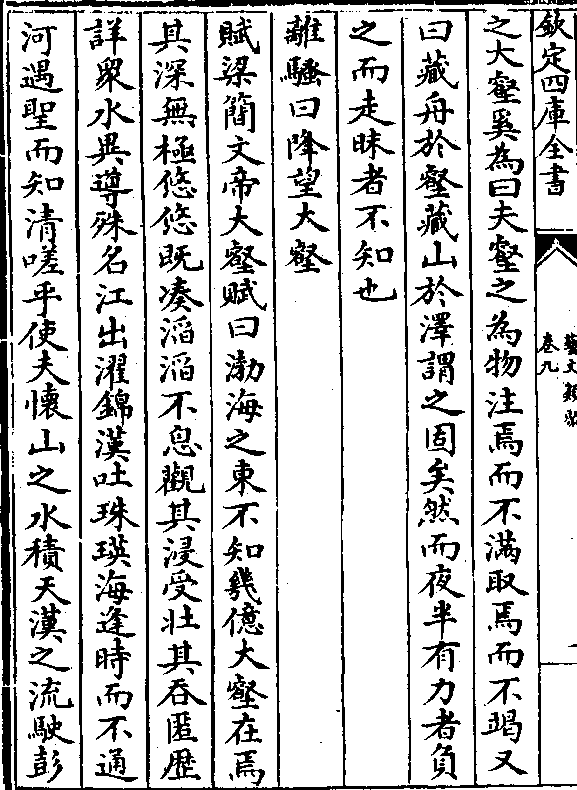 欽定四庫全書
藝文類聚
卷九
之大壑奚為曰夫壑之為物注焉而不滿取焉而不竭又
曰藏舟於壑藏山於澤謂之固矣然而夜半有力者負
之而走昧者不知也
離騷曰降望大壑
賦梁簡文帝大壑賦曰渤海之東不知幾億大壑在焉
其深無極悠悠既湊滔滔不息觀其浸受壯其吞匿歷
詳衆水異導殊名江出濯錦漢吐珠瑛海逢時而不通
河遇聖而知清嗟乎使夫懷山之水積天漢之流駛彭